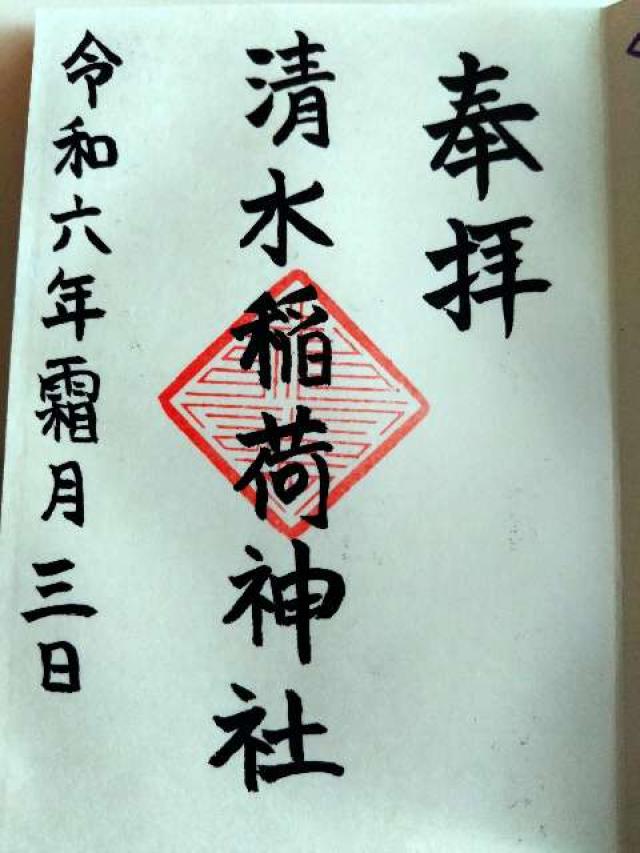 奉拝
清水稲荷神社
令和六年霜月三日